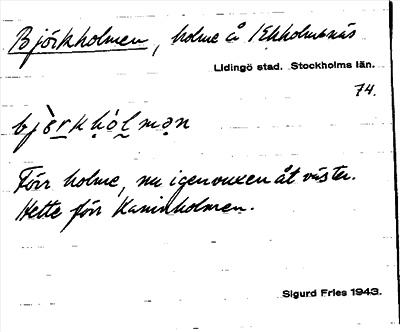 Björkholmen, holme å Ekholmsnäs
Lidingö stad. Stockholms län.
74.
bjèrkhólmən
Förr holme, nu igenvuxen åt väster.
Hette förr Kaninholmen.
Sigurd Fries 1943.